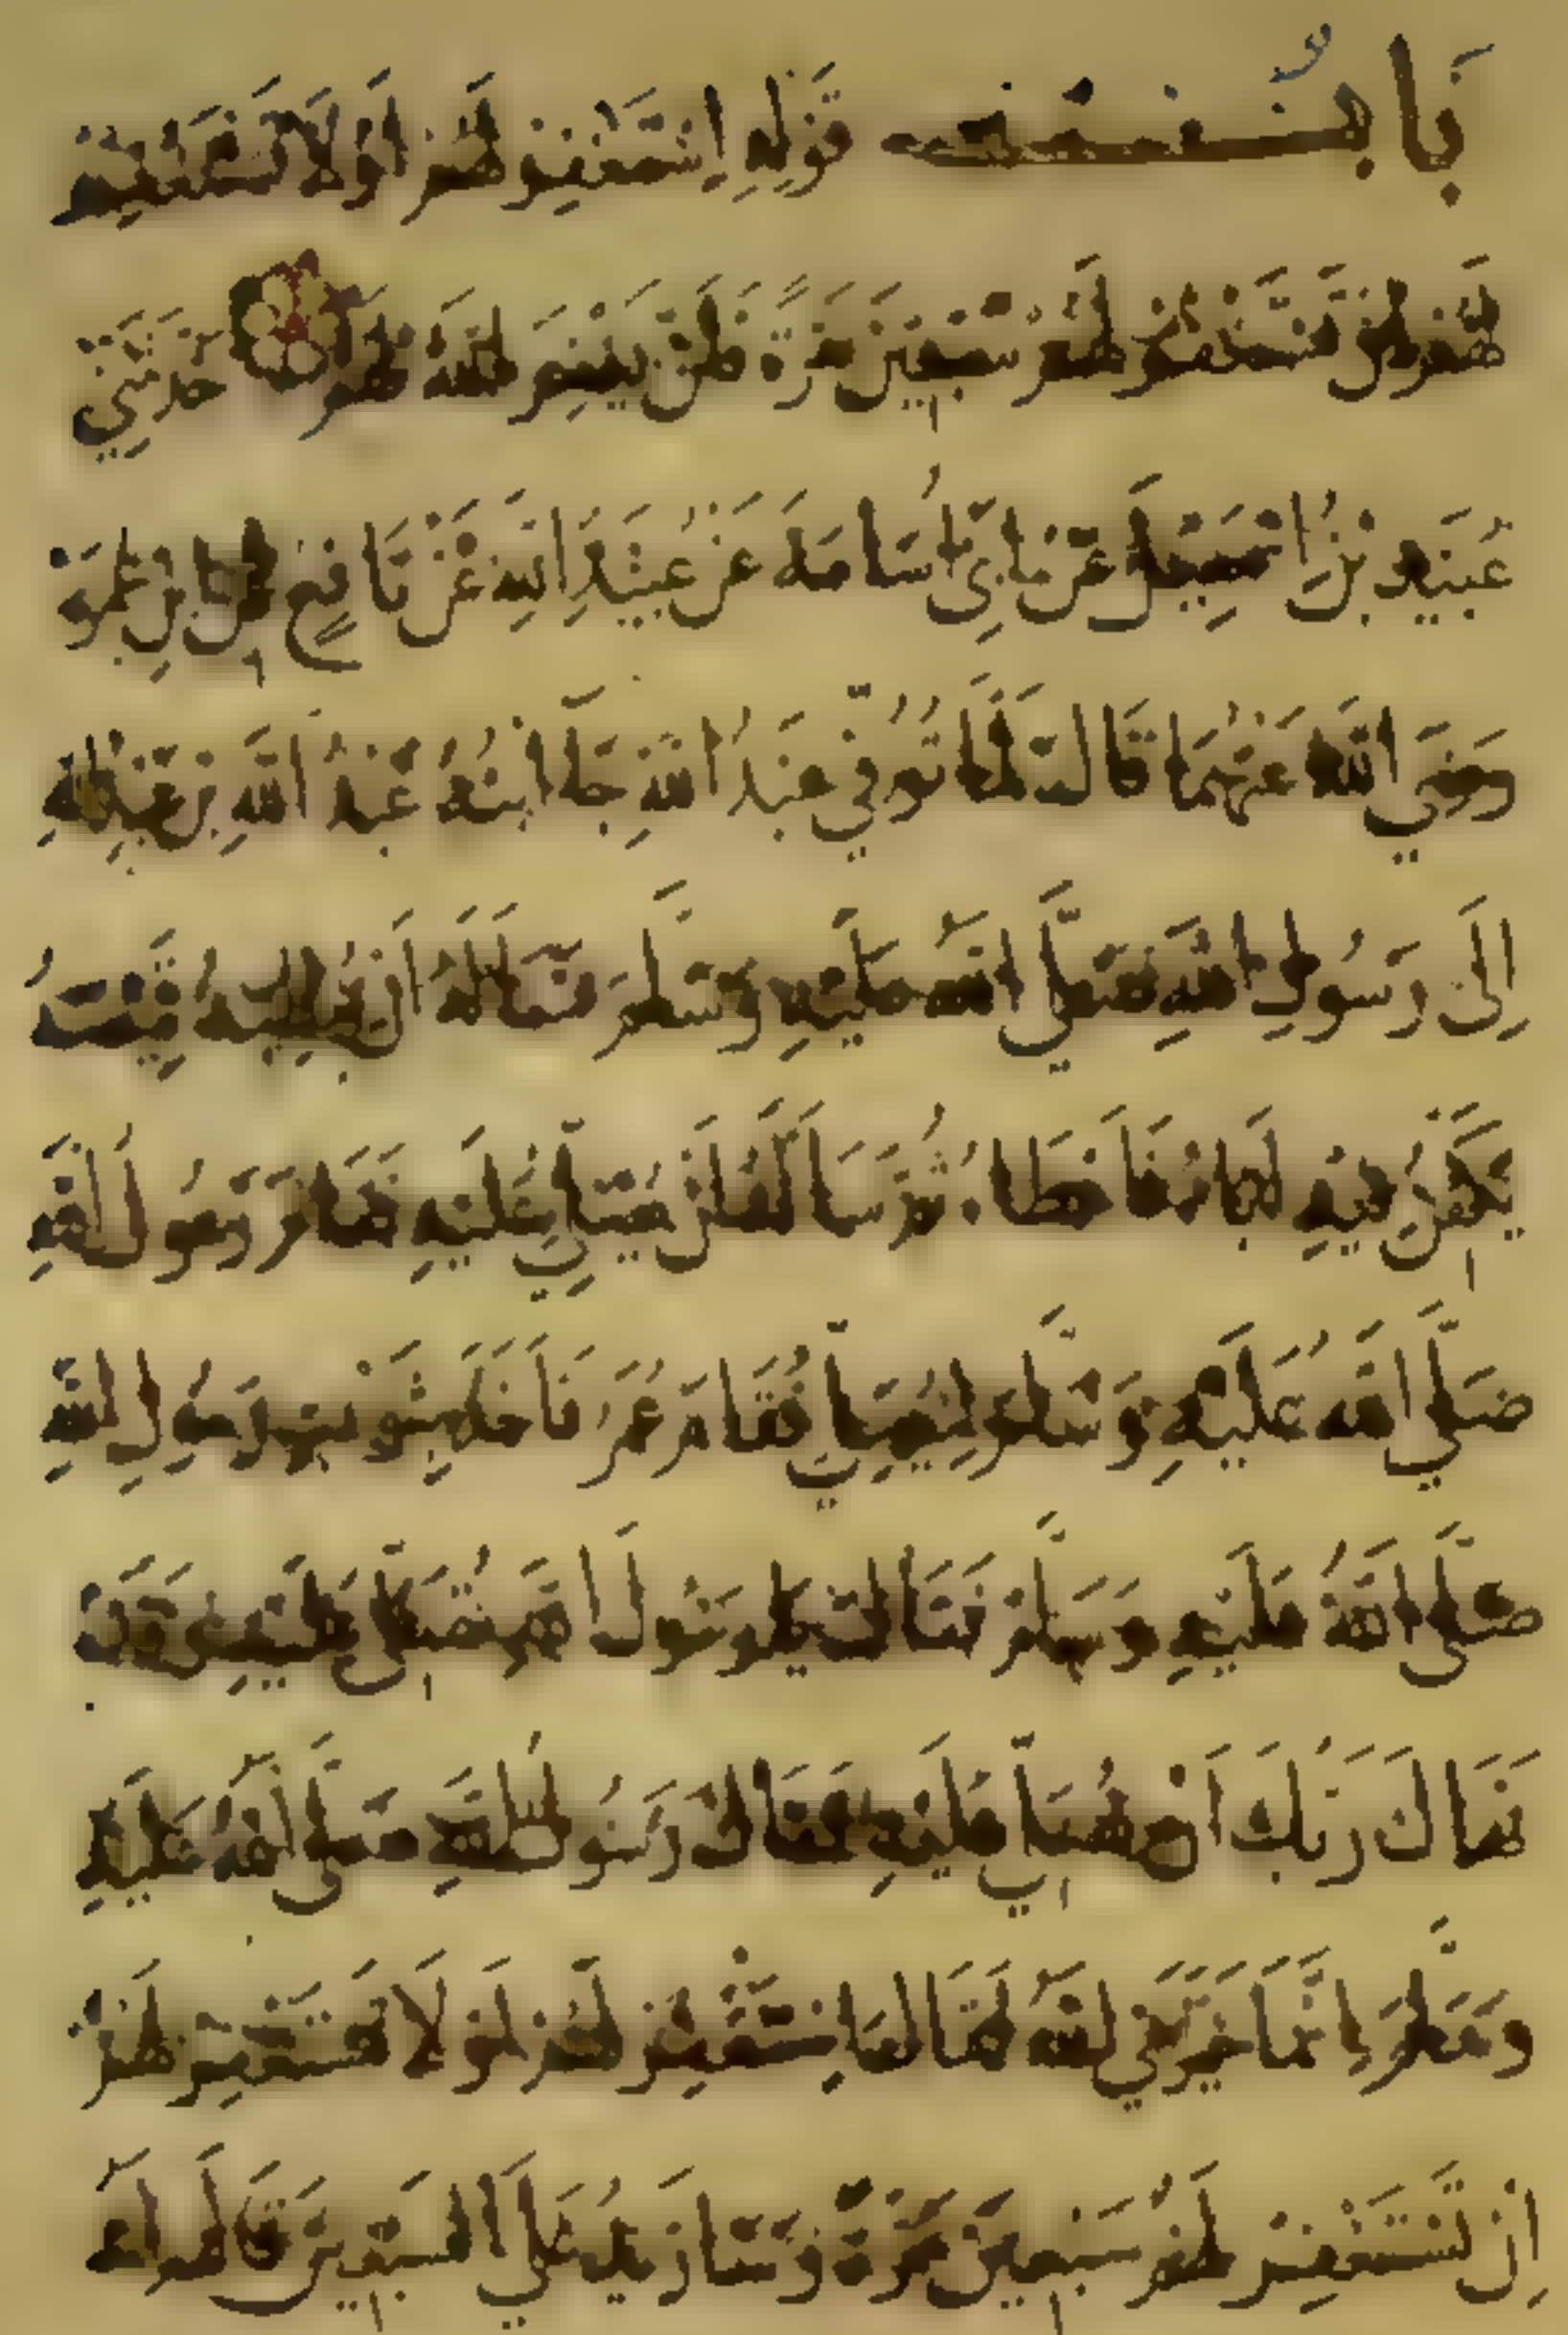 بَابٌ قَوْلِهِ اِسْتَغْفِرْ لَهُمْ اَوْ لَا تَسْتَغْفِرْ
لَهُمْ اِنْ تَسْتَغْفِرْ لَهُمْ سَبْعِينَ مَرَّةً فَلَنْ يَغْفِرَ اللّٰهُ لَهُمْ حَدَّثَنِي
عُبَيْدُ بْنُ اِسْمٰعِيلَ عَنْ اَبِي اُسَامَةَ عَنْ عُبَيْدِ اللّٰهِ عَنْ نَافِعٍ عَنِ ابْنِ عُمَرَ
رَضِيَ اللّٰهُ عَنْهُمَا قَالَ لَمَّا تُوُفِّيَ عَبْدُ اللّٰهِ جَاءَ ابْنُهُ عَبْدُ اللّٰهِ بْنُ عَبْدِ اللّٰهِ
اِلَى رَسُولِ اللّٰهِ صَلَّى اللّٰهُ عَلَيْهِ وَسَلَّمَ فَسَأَلَهُ اَنْ يُعْطِيَهُ قَمِيصَهُ
يُكَفِّنُ فِيهِ اَبَاهُ فَاَعْطَاهُ ثُمَّ سَاَلَهُ اَنْ يُصَلِّيَ عَلَيْهِ فَقَامَ رَسُولُ اللّٰهِ
صَلَّى اللّٰهُ عَلَيْهِ وَسَلَّمَ لِيُصَلِّيَ فَقَامَ عُمَرُ فَاَخَذَ بِثَوْبِ رَسُولِ اللّٰهِ
صَلَّى اللّٰهُ عَلَيْهِ وَسَلَّمَ فَقَالَ يَا رَسُولَ اللّٰهِ تُصَلِّي عَلَيْهِ وَقَدْ
نَهَاكَ رَبُّكَ اَنْ تُصَلِّيَ عَلَيْهِ فَقَالَ رَسُولُ اللّٰهِ صَلَّى اللّٰهُ عَلَيْهِ
وَسَلَّمَ اِنَّمَا خَيَّرَنِي اللّٰهُ فَقَالَ اِسْتَغْفِرْ لَهُمْ اَوْ لَا تَسْتَغْفِرْ لَهُمْ
اِنْ تَسْتَغْفِرْ لَهُمْ سَبْعِينَ مَرَّةً وَسَاَزِيدُهُ عَلَى السَّبْعِينَ قَالَ اِنَّهُ